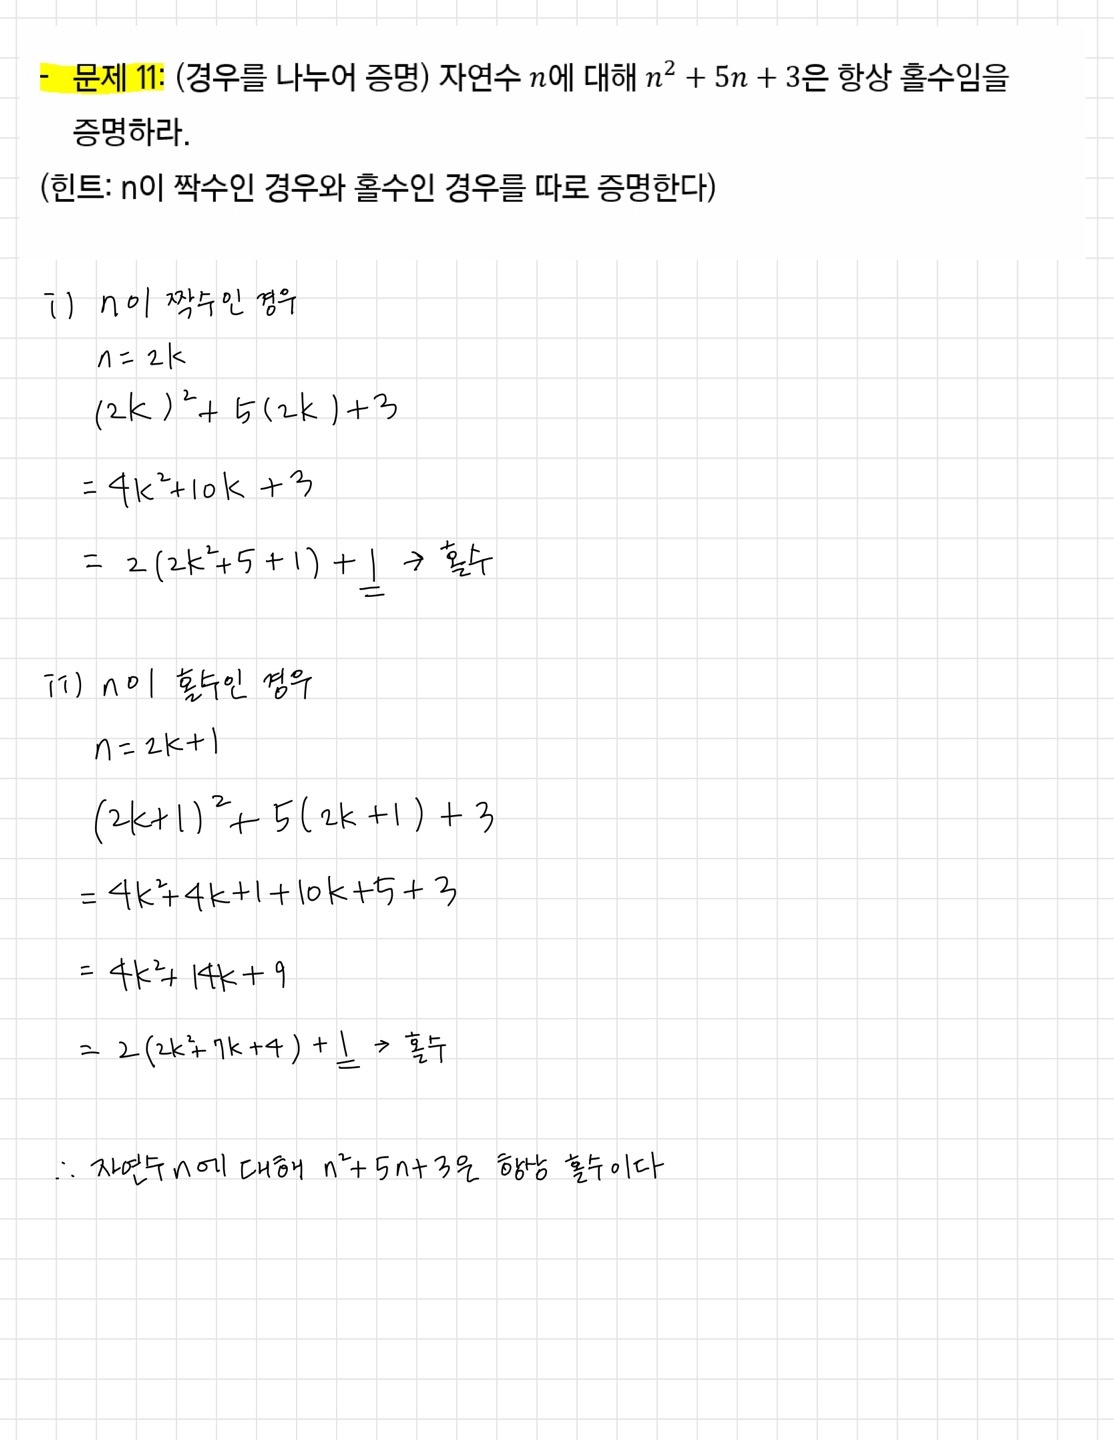 - 문제 11: (경우를 나누어 증명) 자연수 n에 대해 n² + 5n + 3은 항상 홀수임을
증명하라.
(힌트: n이 짝수인 경우와 홀수인 경우를 따로 증명한다)
i) n이 짝수인 경우
n = 2k
(2k)² + 5(2k) + 3
= 4k² + 10k + 3
= 2(2k² + 5 + 1) + 1 → 홀수
ii) n이 홀수인 경우
n = 2k+1
(2k+1)² + 5(2k+1) + 3
= 4k² + 4k + 1 + 10k + 5 + 3
= 4k² + 14k + 9
= 2(2k² + 7k + 4) + 1 → 홀수
∴ 자연수 n에 대해 n² + 5n + 3은 항상 홀수이다